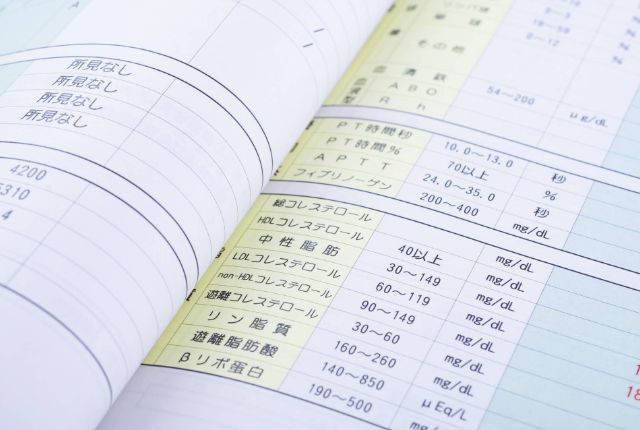 所見なし
所見なし
所見なし
所見なし
4200
5310
4
リンパ球
球
その他 0〜12 %
血清鉄 54〜200 μg/dL
血液型 ABO
Rh
PT時間秒 10.0〜13.0 秒
PT時間% 70以上 %
APTT 24.0〜35.0 秒
フィブリノーゲン 200〜400 mg/dL
総コレステロール mg/dL
HDLコレステロール 40以上 mg/dL
中性脂肪 30〜149 mg/dL
LDLコレステロール 60〜119 mg/dL
non-HDLコレステロール 90〜149 mg/dL
遊離コレステロール 30〜60 mg/dL
リン脂質 160〜260 mg/dL
遊離脂肪酸 140〜850 μEq/L
βリポ蛋白 190〜500